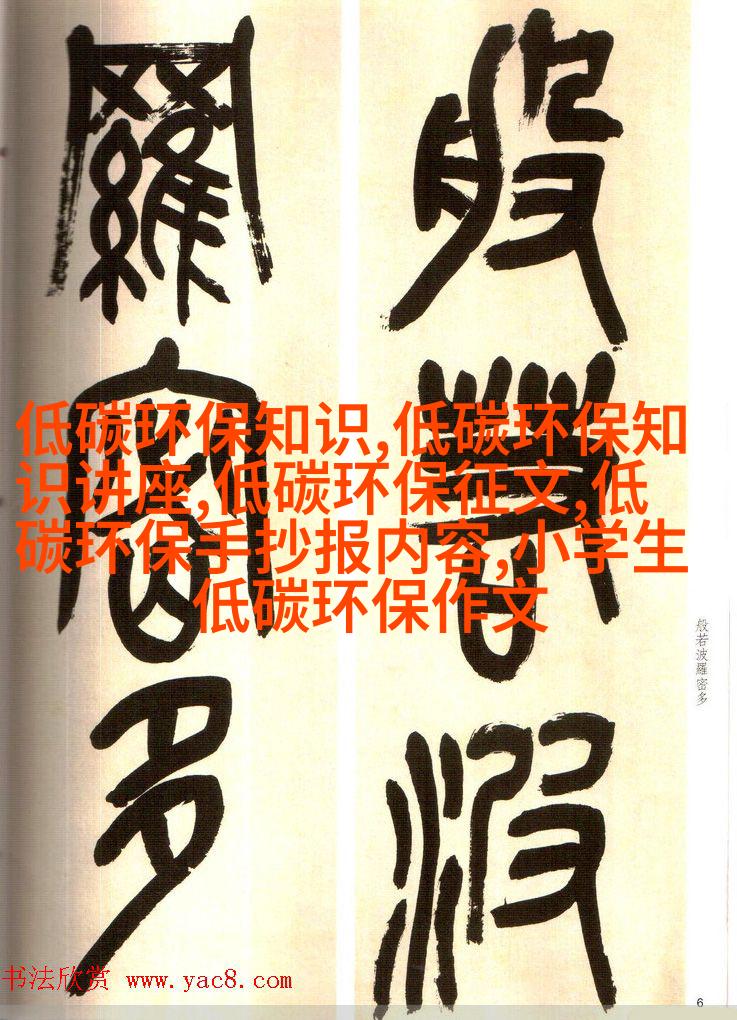 般若波
羅密多
低碳环保知识,低碳环保知
识讲座,低碳环保征文,低
碳环保手抄报内容,小学生
低碳环保作文
般若波羅密多
书法欣赏 www.yac8.com
6